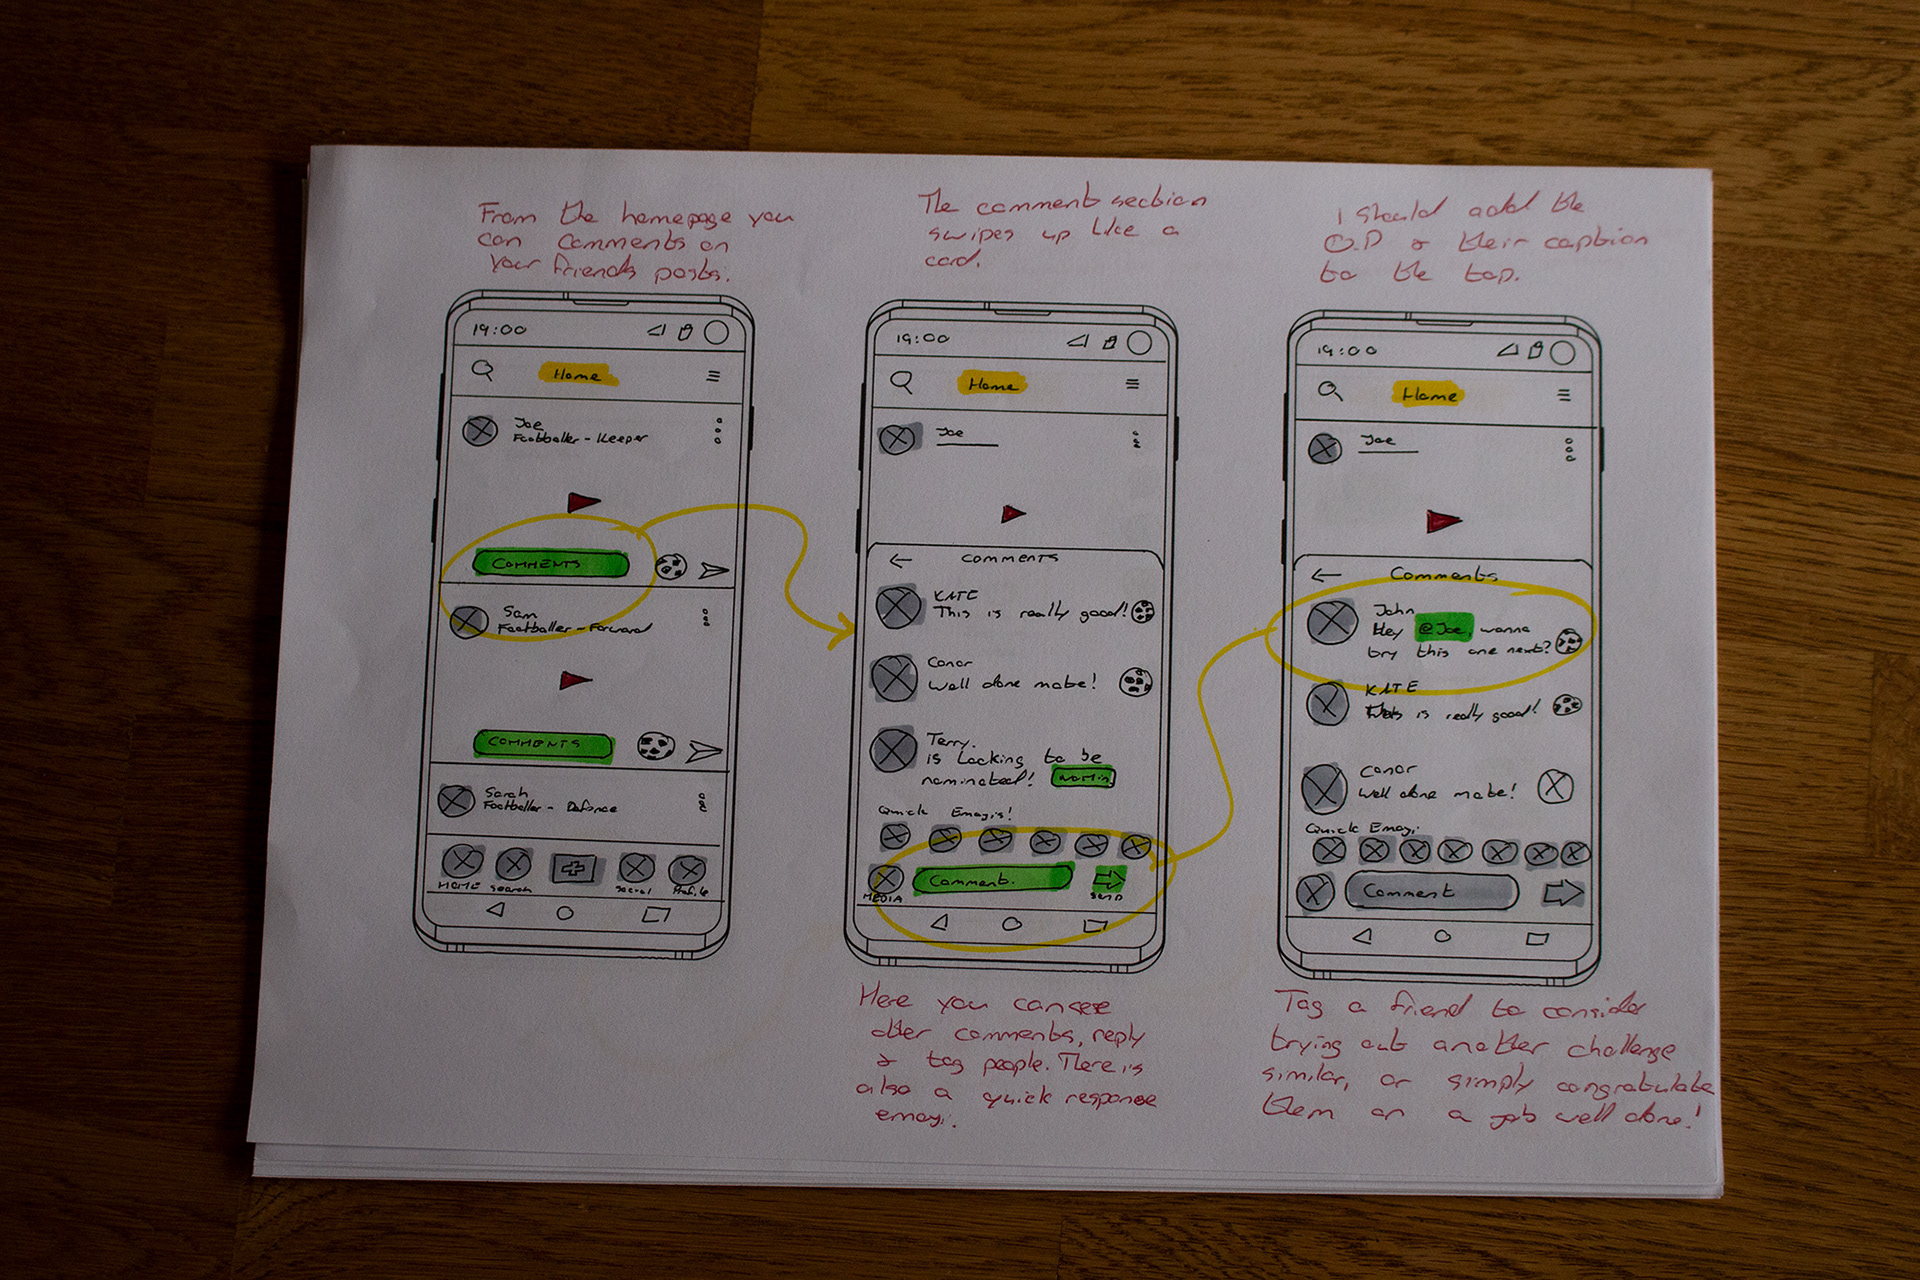 From the homepage you
can comments on
your friends posts.
The comment section
swipes up like a
card.
I should add the
O.P & their caption
to the top.
19:00
Home
Joe
Footballer - Keeper
COMMENTS
Sam
Footballer - Forward
COMMENTS
Sarah
Footballer - Defence
HOME
Search
Social
Profile
19:00
Home
Joe
COMMENTS
KATE
This is really good!
Conor
Well done mate!
Terry.
is Looking to be
nominated! nomin
Quick Emogis!
Comment.
MEDIA
Send
19:00
Home
Joe
Comments
John
Hey @Joe, wanna
try this one next?
KATE
This is really good!
Conor
Well done mate!
Quick Emogi
Comment
Here you can see
other comments, reply
& tag people. There is
also a quick response
emogi.
Tag a friend to consider
trying out another challenge
similar, or simply congratulate
them on a job well done!